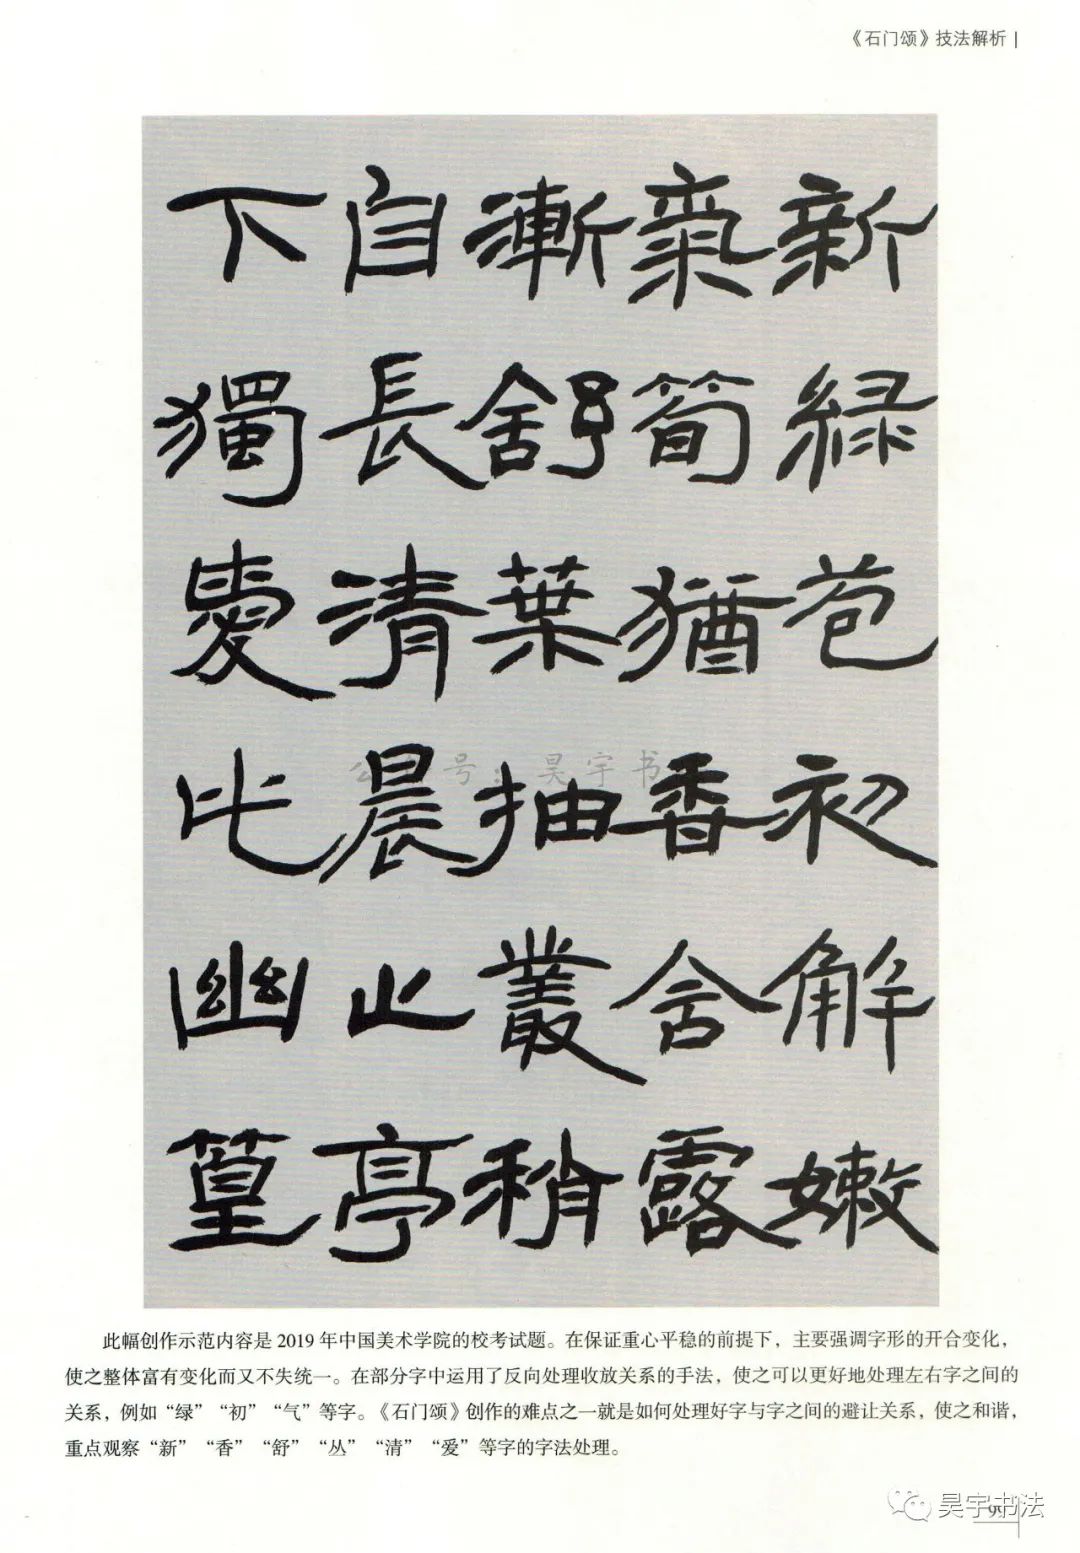 《石门颂》技法解析
新綠苞初解嫩
氣筍猶香含露
漸舒葉抽叢稍
自長清晨止亭
下獨愛此幽篁
号：昊宇书
此幅创作示范内容是 2019 年中国美术学院的校考试题。在保证重心平稳的前提下，主要强调字形的开合变化，
使之整体富有变化而又不失统一。在部分字中运用了反向处理收放关系的手法，使之可以更好地处理左右字之间的
关系，例如“绿”“初”“气”等字。《石门颂》创作的难点之一就是如何处理好字与字之间的避让关系，使之和谐，
重点观察“新”“香”“舒”“丛”“清”“爱”等字的字法处理。
昊宇书法